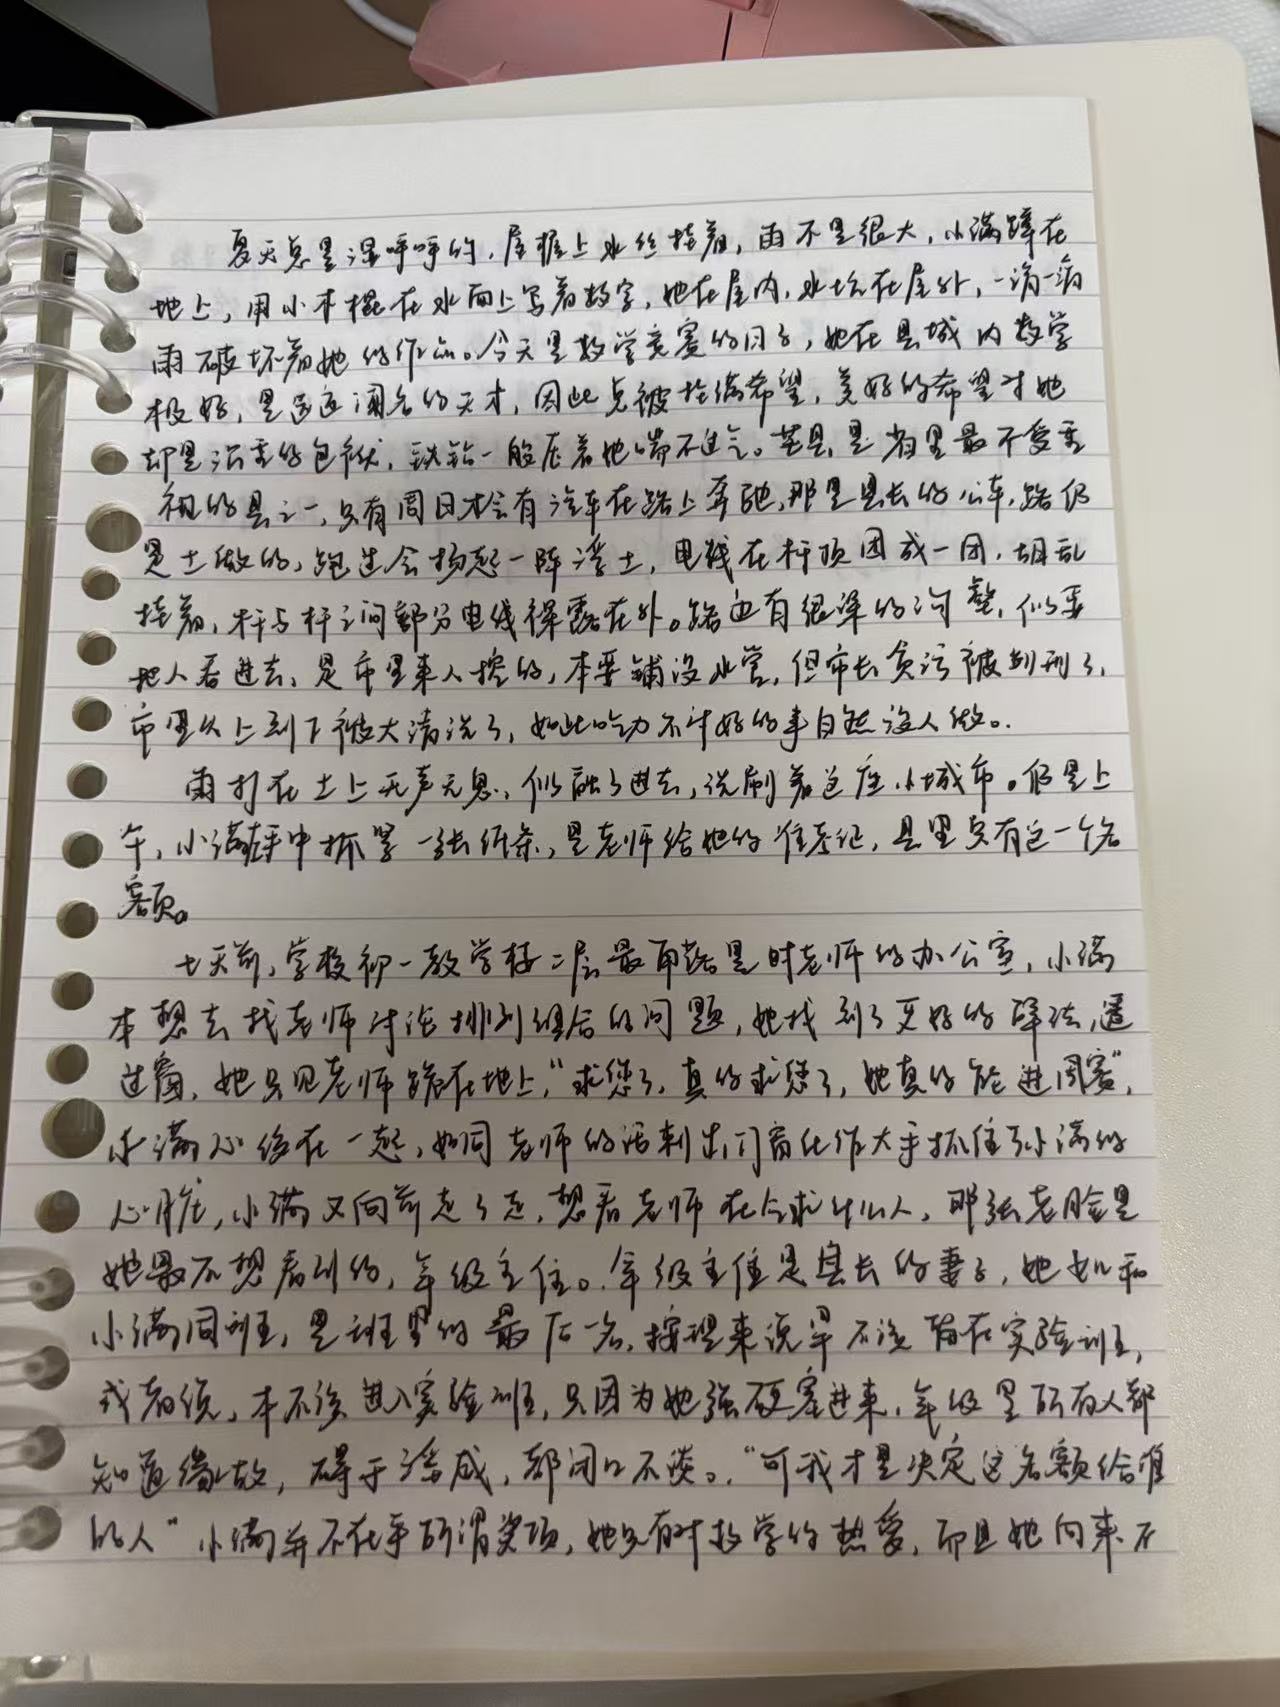 夏天总是湿呼呼的，屋檐上水丝挂着，雨不是很大，小满蹲在
地上，用小木棍在水面上写着数字，她在屋内，水坑在屋外，一滴一滴
雨破坏着她的作品。今天是数学竞赛的日子，她在县城内数学
极好，是远近闻名的天才，因此总被挂满希望，美好的希望对她
却是沉重的包袱，铁钻一般压着她喘不过气。芒县，是省里最不受重
视的县之一，只有周日才会有汽车在路上奔驰，那是县长的公车，路仍
是土做的，跑过会扬起一阵浮土，电线在杆顶团成一团，胡乱
挂着，杆与杆之间部分电线裸露在外。路边有很深的沟壑，似要
把人吞进去，是市里来人挖的，本要铺设水管，但市长贪污被判刑了，
市里从上到下被大清洗了，如此吃力不讨好的事自然没人做。
雨打在土上无声无息，似融了进去，洗刷着这座小城市。仍是上
午，小满手中抓紧一张纸条，是老师给她的准考证，县里只有这一个名
额。
七天前，学校初一教学楼二层最西端是时老师的办公室，小满
本想去找老师讨论排列组合的问题，她找到了更好的解法，透
过窗，她只见老师跪在地上，“求您了，真的求您了，她真的能进国赛”，
小满心修在一起，如同老师的话刺出门窗化作大手抓住了小满的
心脏，小满又向前走了走，想看老师在乞求什么人，那张老脸是
她最不想看到的，年级主任。年级主任是县长的妻子，她女儿和
小满同班，是班里的最后一名，按理来说早不该留在实验班，
或者说，本不该进入实验班，只因为她强硬塞进来，年级里所有人都
知道缘故，碍于淫威，都闭口不谈。“可我才是决定这名额给谁
的人”小满并不在乎所谓奖项，她只有对数学的热爱，而且她向来不